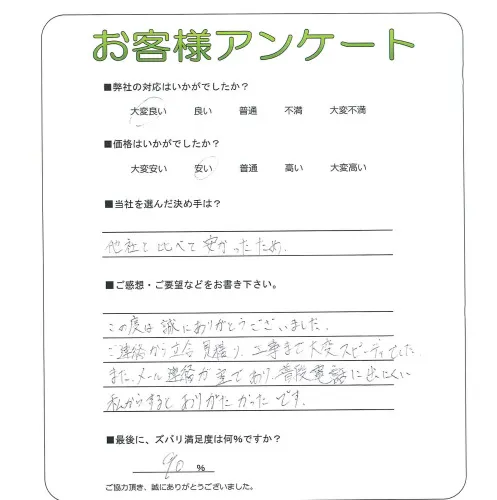 お客様アンケート
■弊社の対応はいかがでしたか？
大変良い 良い 普通 不満 大変不満
■価格はいかがでしたか？
大変安い 安い 普通 高い 大変高い
■当社を選んだ決め手は？
他社と比べて安かったため。
■ご感想・ご要望などをお書き下さい。
この度は誠にありがとうございました。
ご連絡から立合、見積り、工事まで大変スピーディでした。
また、メール連絡が主であり、普段電話に出にくい
私からするとありがたかったです。
■最後に、ズバリ満足度は何%ですか？
90 %
ご協力頂き、誠にありがとうございました。